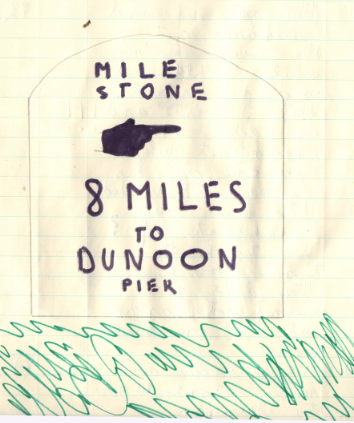 MILE
STONE
8 MILES
TO
DUNOON
PIER